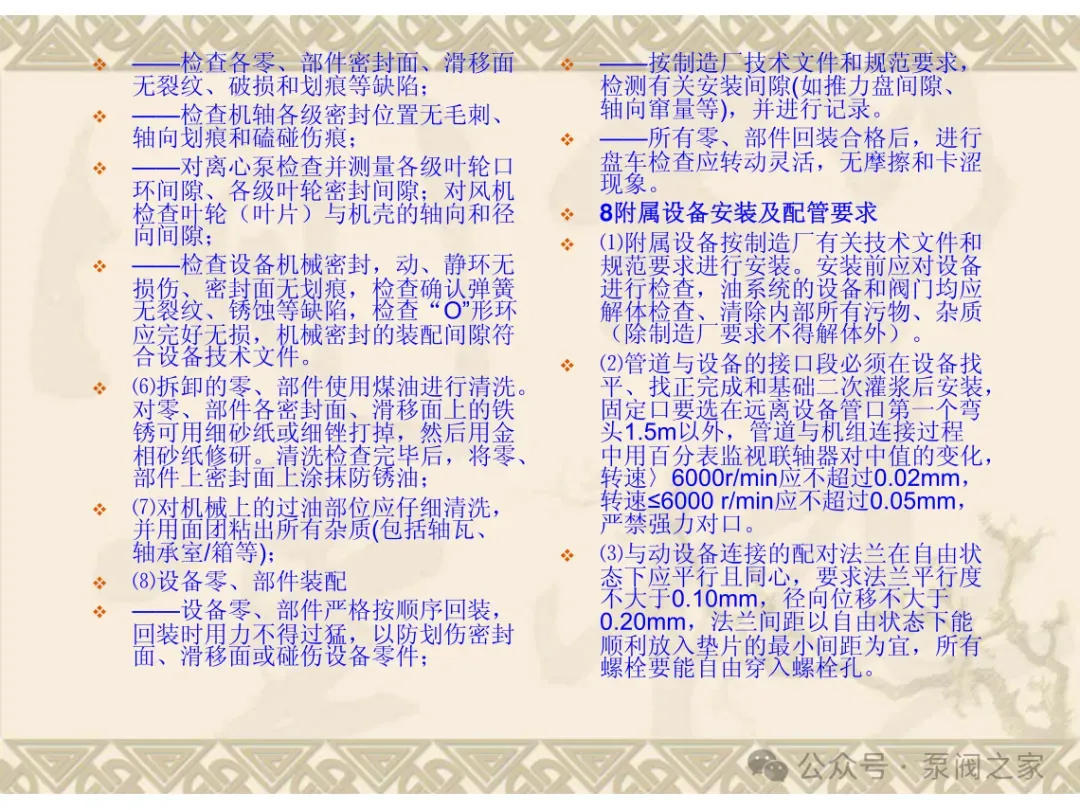 ——检查各零、部件密封面、滑移面
无裂纹、破损和划痕等缺陷；
——检查机轴各级密封位置无毛刺、
轴向划痕和磕碰伤痕；
——对离心泵检查并测量各级叶轮口
环间隙、各级叶轮密封间隙；对风机
检查叶轮（叶片）与机壳的轴向和径
向间隙；
——检查设备机械密封，动、静环无
损伤、密封面无划痕，检查确认弹簧
无裂纹、锈蚀等缺陷，检查“O”形环
应完好无损，机械密封的装配间隙符
合设备技术文件。
⑹拆卸的零、部件使用煤油进行清洗。
对零、部件各密封面、滑移面上的铁
锈可用细砂纸或细锉打掉，然后用金
相砂纸修研。清洗检查完毕后，将零、
部件上密封面上涂抹防锈油；
⑺对机械上的过油部位应仔细清洗，
并用面团粘出所有杂质(包括轴瓦、
轴承室/箱等)；
⑻设备零、部件装配
——设备零、部件严格按顺序回装，
回装时用力不得过猛，以防划伤密封
面、滑移面或碰伤设备零件；
——按制造厂技术文件和规范要求，
检测有关安装间隙(如推力盘间隙、
轴向窜量等)，并进行记录。
——所有零、部件回装合格后，进行
盘车检查应转动灵活，无摩擦和卡涩
现象。
8附属设备安装及配管要求
⑴附属设备按制造厂有关技术文件和
规范要求进行安装。安装前应对设备
进行检查，油系统的设备和阀门均应
解体检查、清除内部所有污物、杂质
（除制造厂要求不得解体外）。
⑵管道与设备的接口段必须在设备找
平、找正完成和基础二次灌浆后安装，
固定口要选在远离设备管口第一个弯
头1.5m以外，管道与机组连接过程
中用百分表监视联轴器对中值的变化，
转速〉6000r/min应不超过0.02mm，
转速≤6000 r/min应不超过0.05mm，
严禁强力对口。
⑶与动设备连接的配对法兰在自由状
态下应平行且同心，要求法兰平行度
不大于0.10mm，径向位移不大于
0.20mm，法兰间距以自由状态下能
顺利放入垫片的最小间距为宜，所有
螺栓要能自由穿入螺栓孔。
公众号·泵阀之家